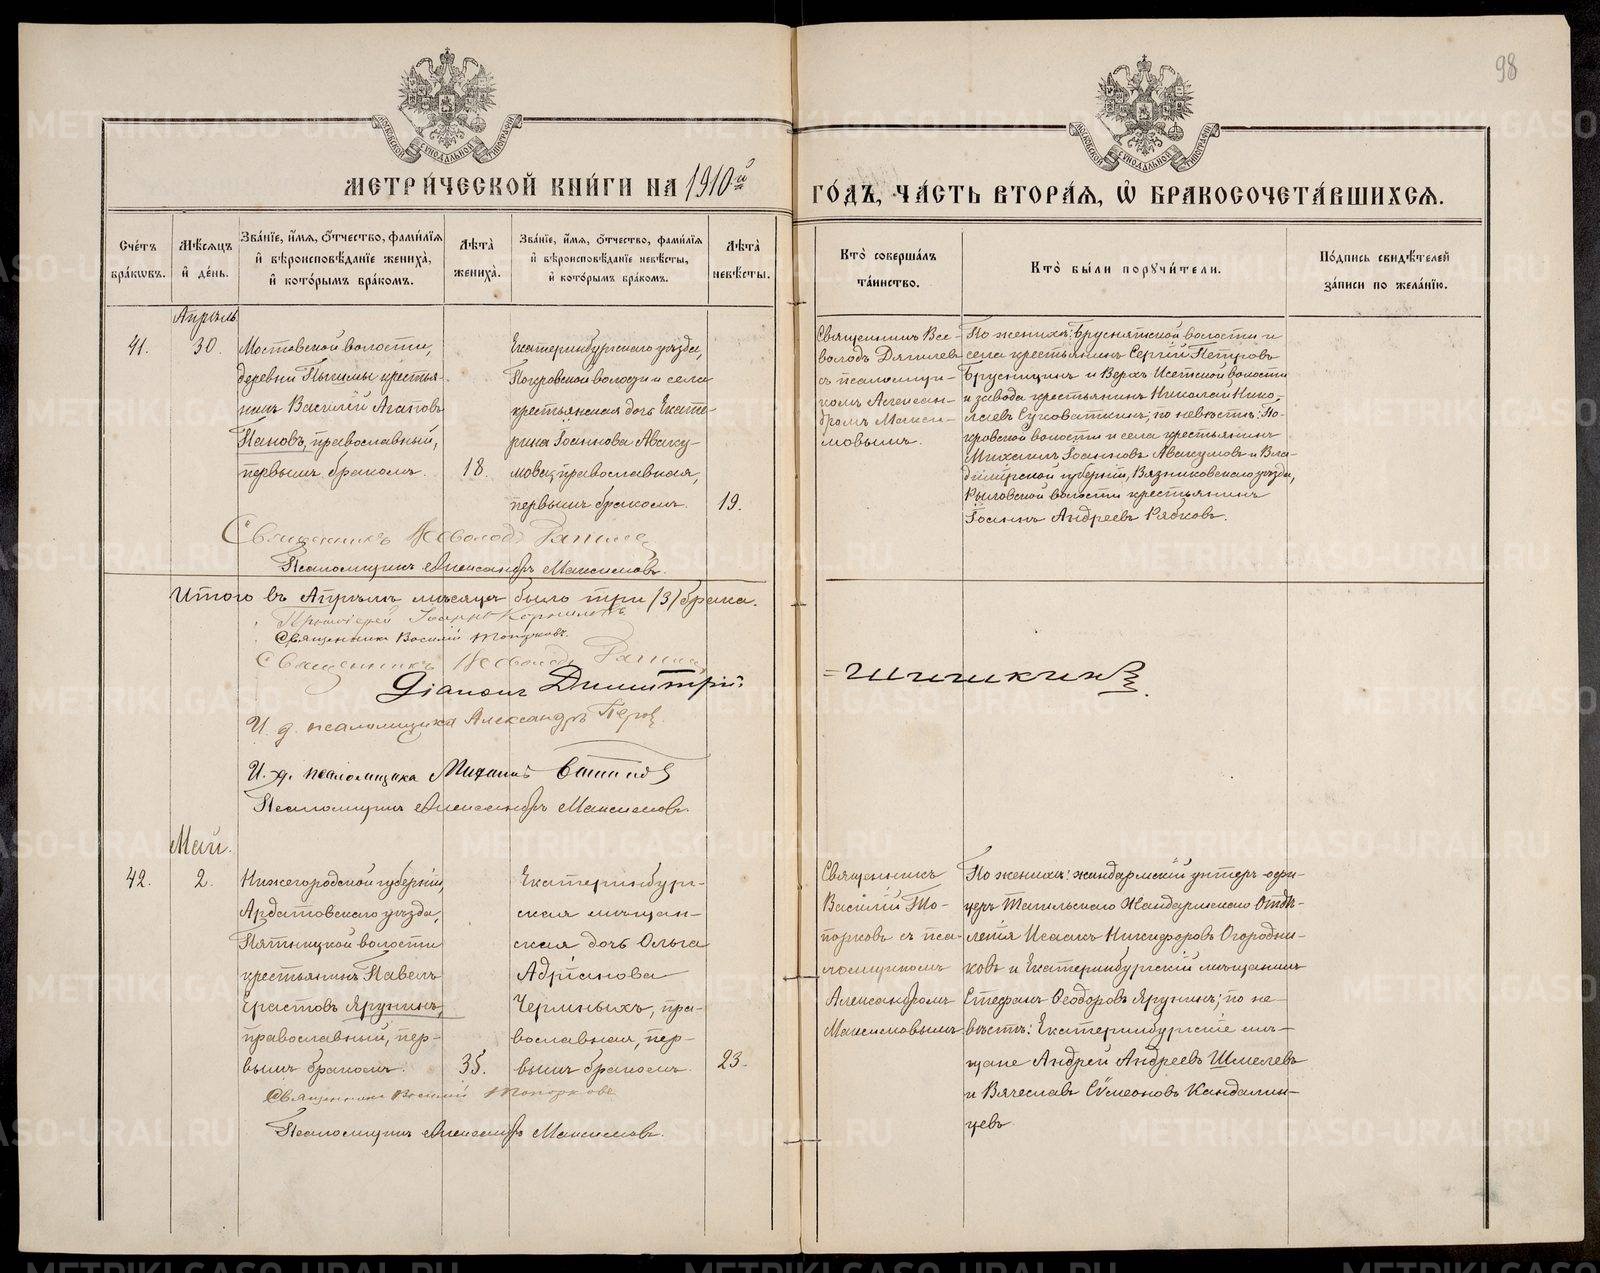 98
МОСКОВСКОЙ СѴНОДАЛЬНОЙ ТИПОГРАФІИ
МОСКОВСКОЙ СѴНОДАЛЬНОЙ ТИПОГРАФІИ
МЕТРИ́ЧЕСКОЙ КНИ́ГИ НА 1910й
ГО́ДЪ, ЧА́СТЬ ВТОРА́Я, Ѡ҆ БРАКОСОЧЕТА́ВШИХСЯ.
Сче́тъ бра́кѡвъ.
Мѣ́сяцъ и҆ де́нь.
Зва́нїе, и҆́мя, ѻ҆́тчество, фамн́лїя и҆ вѣроисповѣ́данїе жениха̀, и҆ кото́рымъ бра́комъ.
Лѣ́та жениха̀.
Зва́нїе, и҆́мя, ѻ҆́тчество, фами́лїя и҆ вѣроисповѣ́данїе невѣ́сты, и҆ кото́рымъ бра́комъ.
Лѣ́та невѣ́сты.
Кто̀ соверша́лъ та́инство.
Кто̀ бы́ли порꙋчи́тели.
По́дпись свидѣ́телей за́писи по жела́нїю.
Апрѣль
41.
30.
Мостовской волости,
деревни Пышмы крестья-
нинъ Василій Агаповъ
Пановъ, православный,
первымъ бракомъ.
18.
Екатеринбургскаго уѣзда,
Покровской волости и села
крестьянская дочь Екате-
рина Іоаннова Аваку-
мова, православная,
первымъ бракомъ.
19.
Священникъ Все-
володъ Дягилев
съ псаломщи-
комъ Алексан-
дромъ Макси-
мовымъ.
По женихѣ: Бруснятской волости и
села крестьянинъ Сергій Петровъ
Брусницынъ и Верхъ Исетской волости
и завода крестьянинъ Николай Нико-
лаевъ Суковаткинъ; по невѣстѣ: По-
кровской волости и села крестьянинъ
Михаилъ Іоанновъ Авакумовъ и Вла-
димірской губерніи, Вязниковскаго уѣзда,
Рыловской волости крестьянинъ
Іоаннъ Андреевъ Рябковъ.
Священникъ Всеволодъ
Псаломщикъ Александръ Максимовъ.
Итого въ Апрѣлѣ мѣсяцѣ было три (3) брака.
Протоіерей Іоаннъ Корнилевъ
Священникъ Василій Топорковъ.
Священникъ Всеволодъ
Діаконъ Димитрій
=Шишкинъ.
И. д. псаломщика Александръ Перов
И. д. псаломщика Михаилъ
Псаломщикъ Александръ Максимовъ.
Май.
42.
2.
Нижегородской губерніи,
Ардатовскаго уѣзда,
Пятницкой волости
крестьянинъ Павелъ
Ерастовъ Ярунинъ,
православный, пер-
вымъ бракомъ.
35.
Екатеринбург-
ская мѣщан-
ская дочь Ольга
Адріанова
Черныхъ, пра-
вославная, пер-
вымъ бракомъ.
23.
Священникъ
Василій То-
порковъ съ пса-
ломщикомъ
Александромъ
Максимовымъ
По женихѣ: жандармскій унтеръ офи-
церъ Тагильскаго Жандармскаго Отдѣ-
ленія Исаакъ Никифоровъ Огородни-
ковъ и Екатеринбургскій мѣщанинъ
Стефанъ Ѳеодоровъ Ярунинъ; по не-
вѣстѣ: Екатеринбургскіе мѣ-
щане Андрей Андреевъ Шмелевъ
и Вячеславъ Сѵмеоновъ Кандалин-
цевъ.
Священникъ Василій Топорковъ
Псаломщикъ Александръ Максимовъ.
METRIKI.GASO-URAL.RU